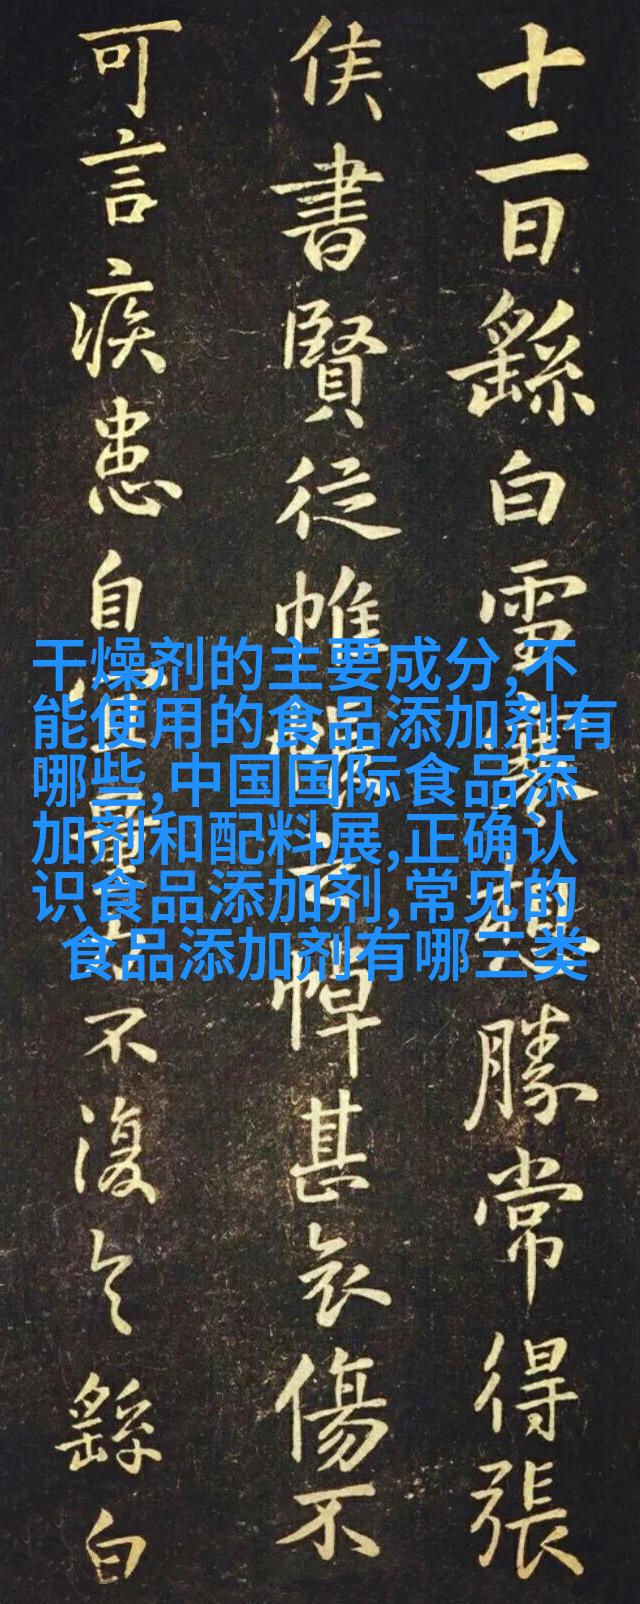 十二日繇白雪寒想勝常得張
侯書賢從帷帳悼甚哀傷不
可言疾患自不復繇白
干燥剂的主要成分,不
能使用的食品添加剂有
哪些,中国国际食品添
加剂和配料展,正确认
识食品添加剂,常见的
食品添加剂有哪三类